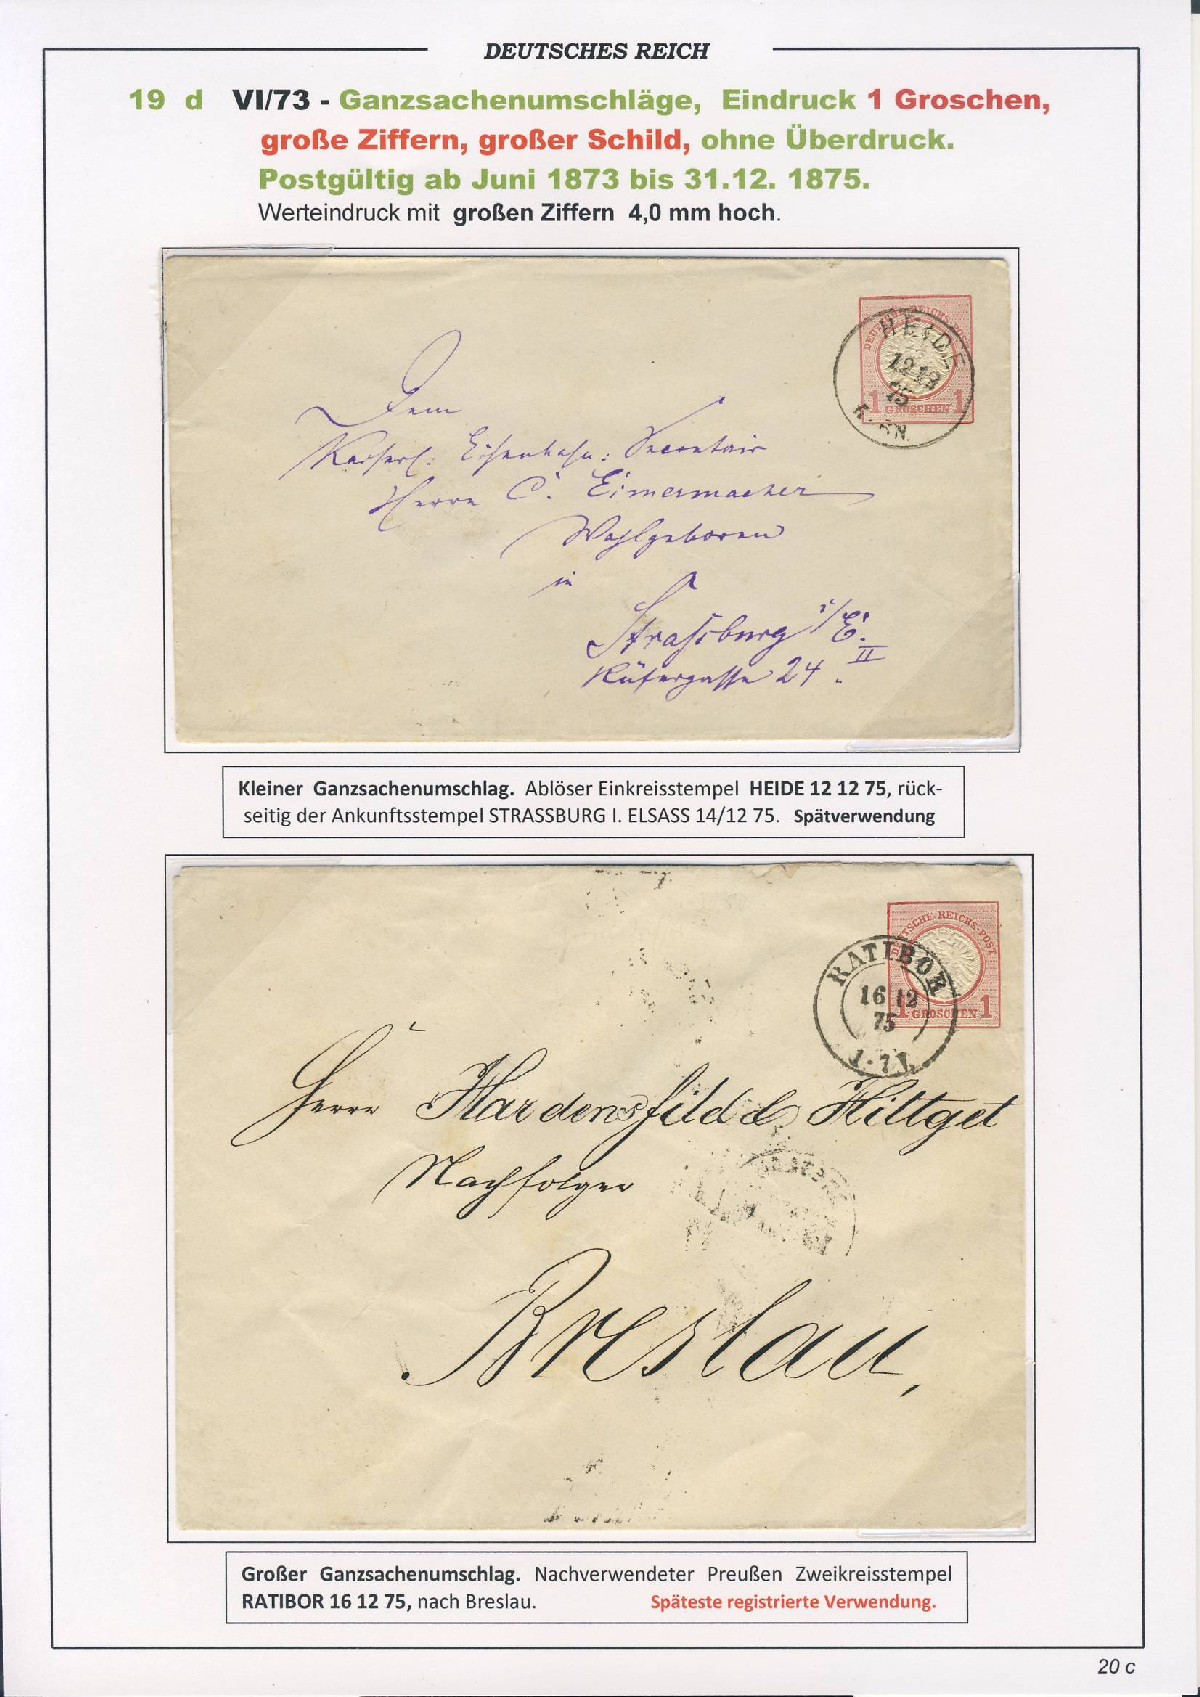 DEUTSCHES REICH
19 d VI/73 - Ganzsachenumschläge, Eindruck 1 Groschen,
große Ziffern, großer Schild, ohne Überdruck.
Postgültig ab Juni 1873 bis 31.12. 1875.
Werteindruck mit großen Ziffern 4,0 mm hoch.
DEUTSCHE REICHS-POST
1 GROSCHEN 1
HEIDE
12 12
75
Dem
Kaiserl: Eisenbahn: Secretair
Herrn C. Eimermacher
Wohlgeboren
in
Strassburg i/E.
II
Küfergasse 24.
Kleiner Ganzsachenumschlag. Ablöser Einkreisstempel HEIDE 12 12 75, rück-
seitig der Ankunftsstempel STRASSBURG I. ELSASS 14/12 75. Spätverwendung
DEUTSCHE REICHS-POST
1 GROSCHEN 1
RATIBOR
16 12
75
Herrn
Nachfolger
Breslau,
Großer Ganzsachenumschlag. Nachverwendeter Preußen Zweikreisstempel
RATIBOR 16 12 75, nach Breslau. Späteste registrierte Verwendung.
20 c